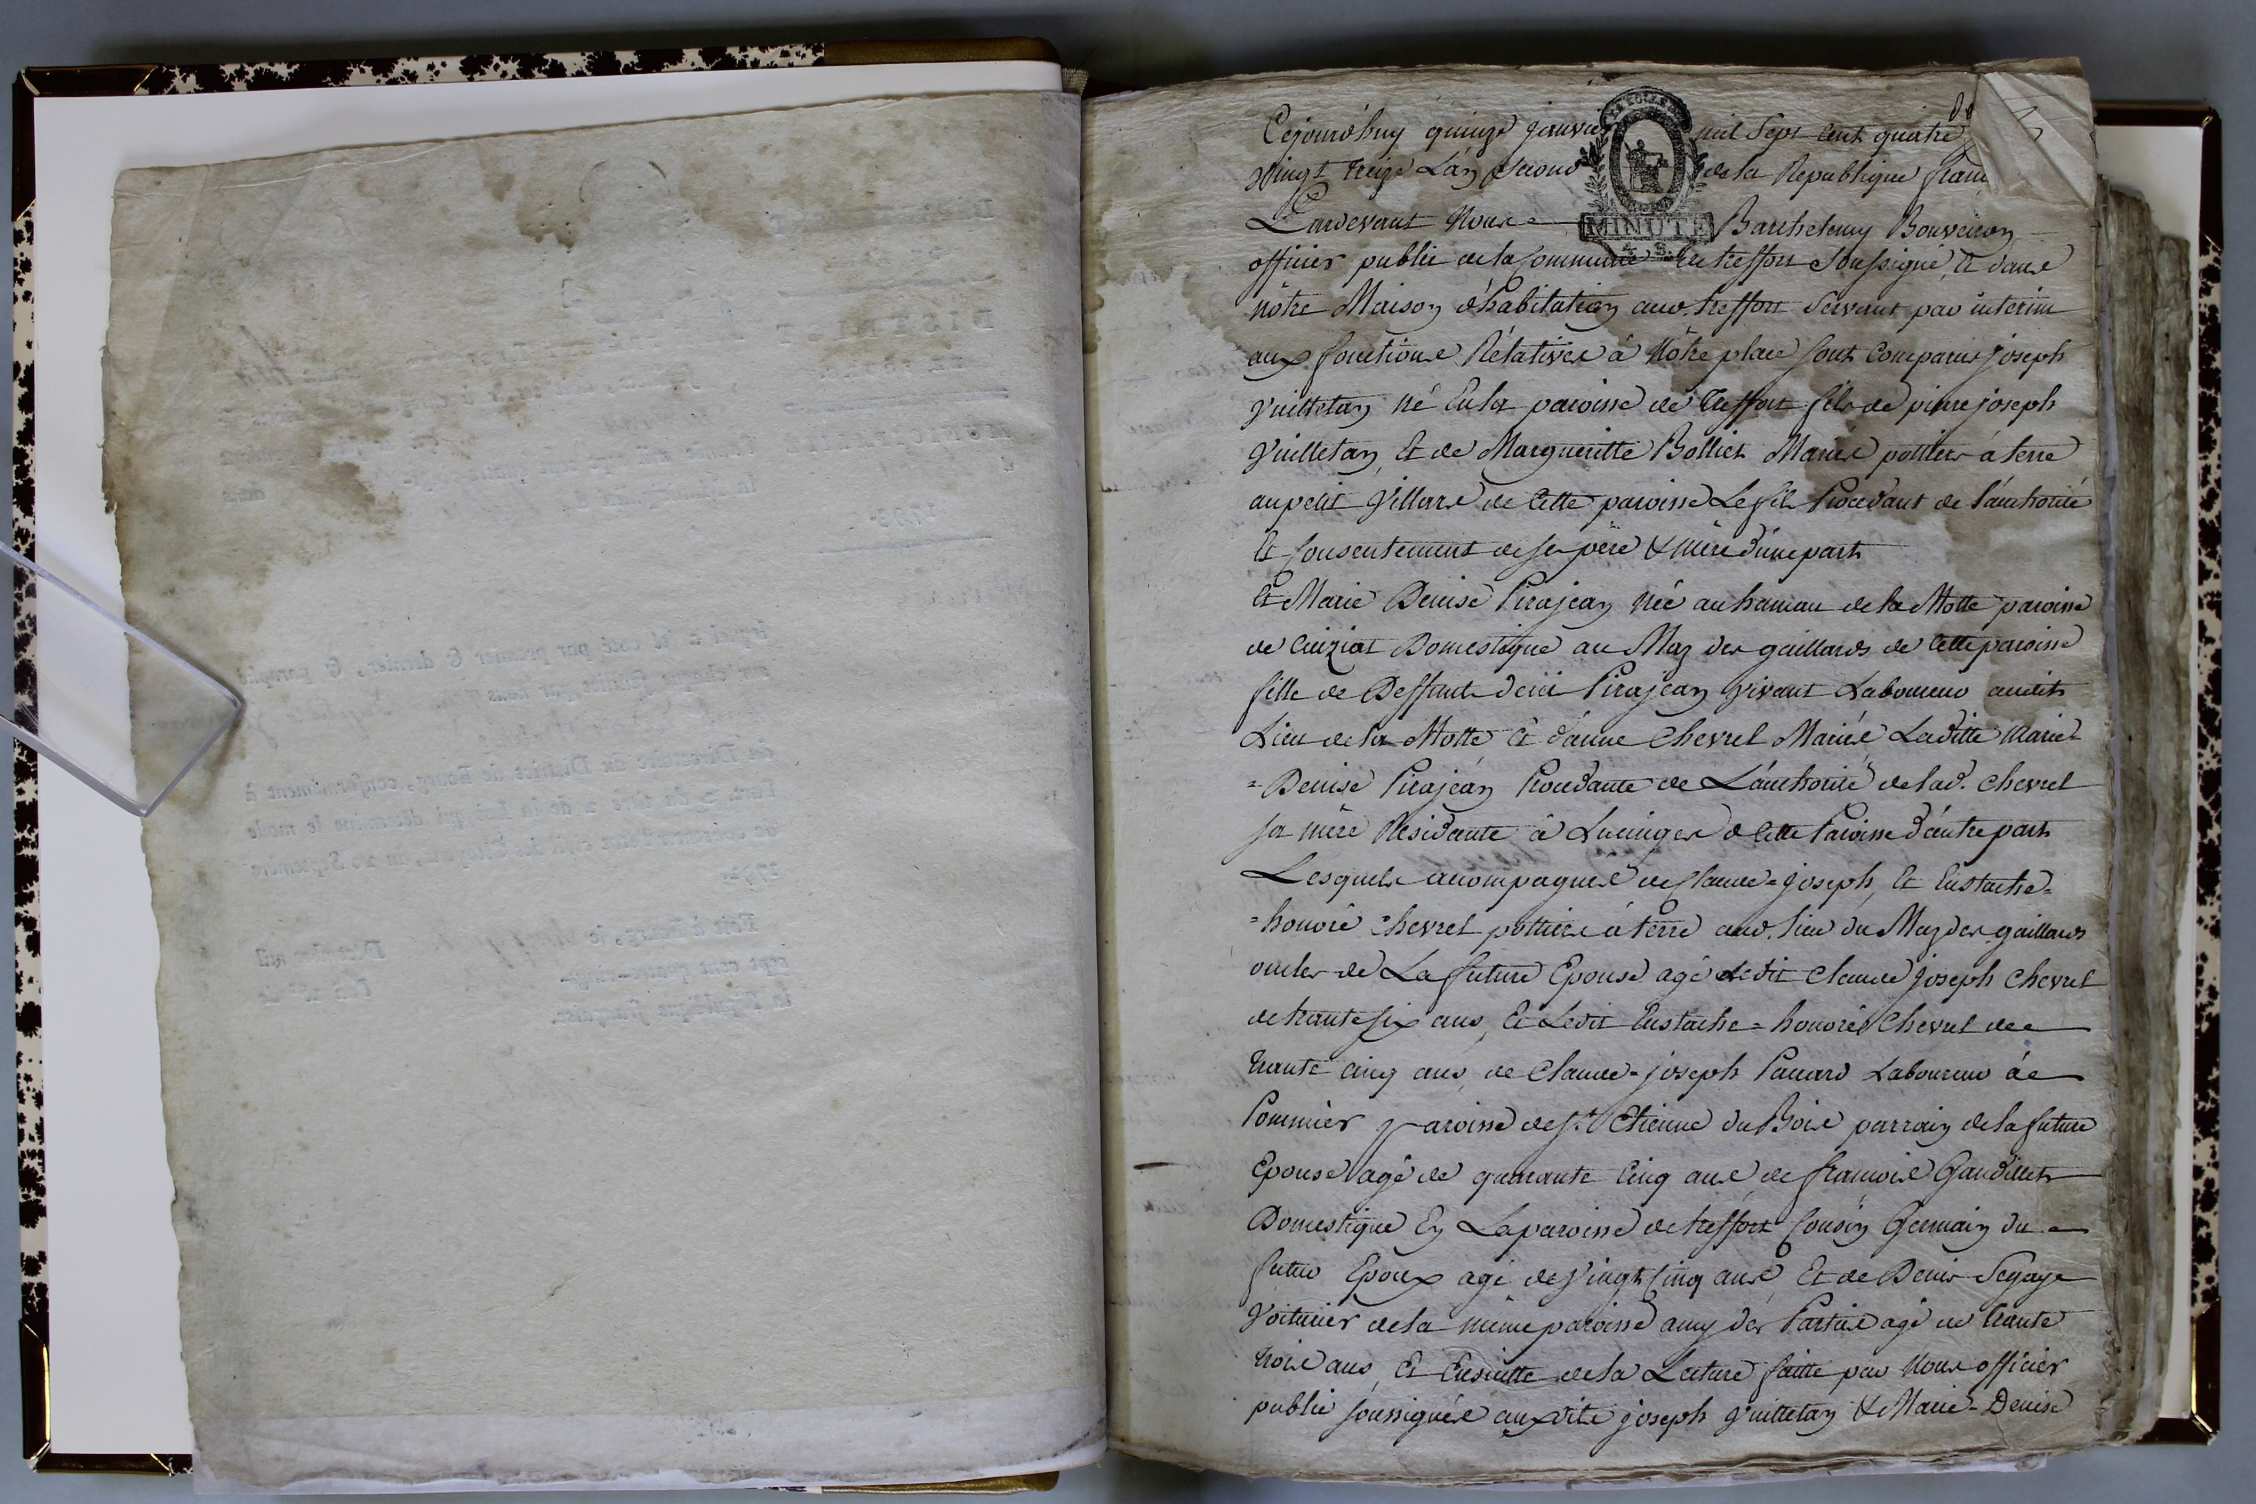 Cejourd'huy quinze janvier mil sept cent quatre
vingt treize L'an second de la Republique
Pardevant Nous Barthelemy Bouveiron
officier public de la Commune de treffort soussigné, et dans
nôtre Maison d'habitation aud. treffort servant par interim
aux fonctions Rélatives à Nôtre place sont Comparus joseph
Vuilletan né En la paroisse de Treffort fils de pierre joseph
Vuilletan, et de Margueritte Bolliet Mariés pottiers à terre
au petit Villars de Cette paroisse Le fils Procedant de l'authorité
Et Consentement de ses père & mère d'une part
Et Marie Denise Pirajean née au hameau de la Motte paroisse
de Cuiziat Domestique au Maz des gaillards de Cette paroisse
fille de Deffunt denis Pirajean vivant Laboureur audit
Lieu de la Motte et d'anne Chevrel Mariés Laditte Marie-
=Denise Pirajéan Procedante de L'authorité de lad. Chevrel
sa mère Residante à Lucinges de Cette Paroisse d'autre part
Lesquels acompagnés de Claude=joseph, Et Eustache=
=honoré Chevrel pottiers à terre aud. Lieu du Maz des gaillards
oncles de La future Epouse agé Ledit Claude joseph Chevrel
de trante six ans, Et Ledit Eustache=honoré Chevrel de
trante cinq ans, de Claude-joseph Laboureur de
Pommier paroisse de St Etienne du Bois parrain de la future
Epouse agé de quarante Cinq ans de francois Gaudillet
Domestique En La paroisse de treffort Cousin Germain du
futur Epoux agé de Vingt Cinq ans, Et de Denis
Voiturier de la même paroisse amy des Parties agé de trante
trois ans, Et Ensuitte de la Lecture faitte par Nous officier
public soussignés auxdits joseph Vuilletan & Marie-Denise